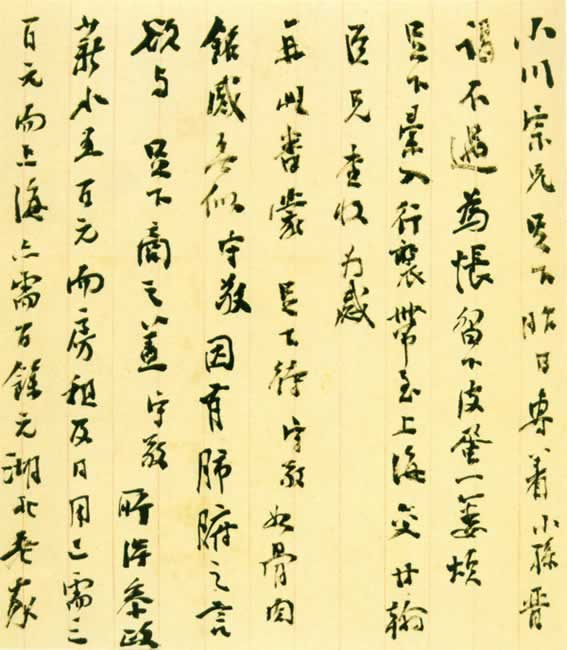 小川宗兄足下昨日專着小孫晉
謁不遇為悵留下皮蛋一簍煩
足下彙入行裝帶至上海交甘翰
臣兄查收为感
再此番蒙 足下待守敬如骨肉
銘感無似守敬因有肺腑之言
欲与 足下商之蓋守敬 所得參政
薪水五百元而房租及日用已需三
百元而上海亦需百餘元湖北老家